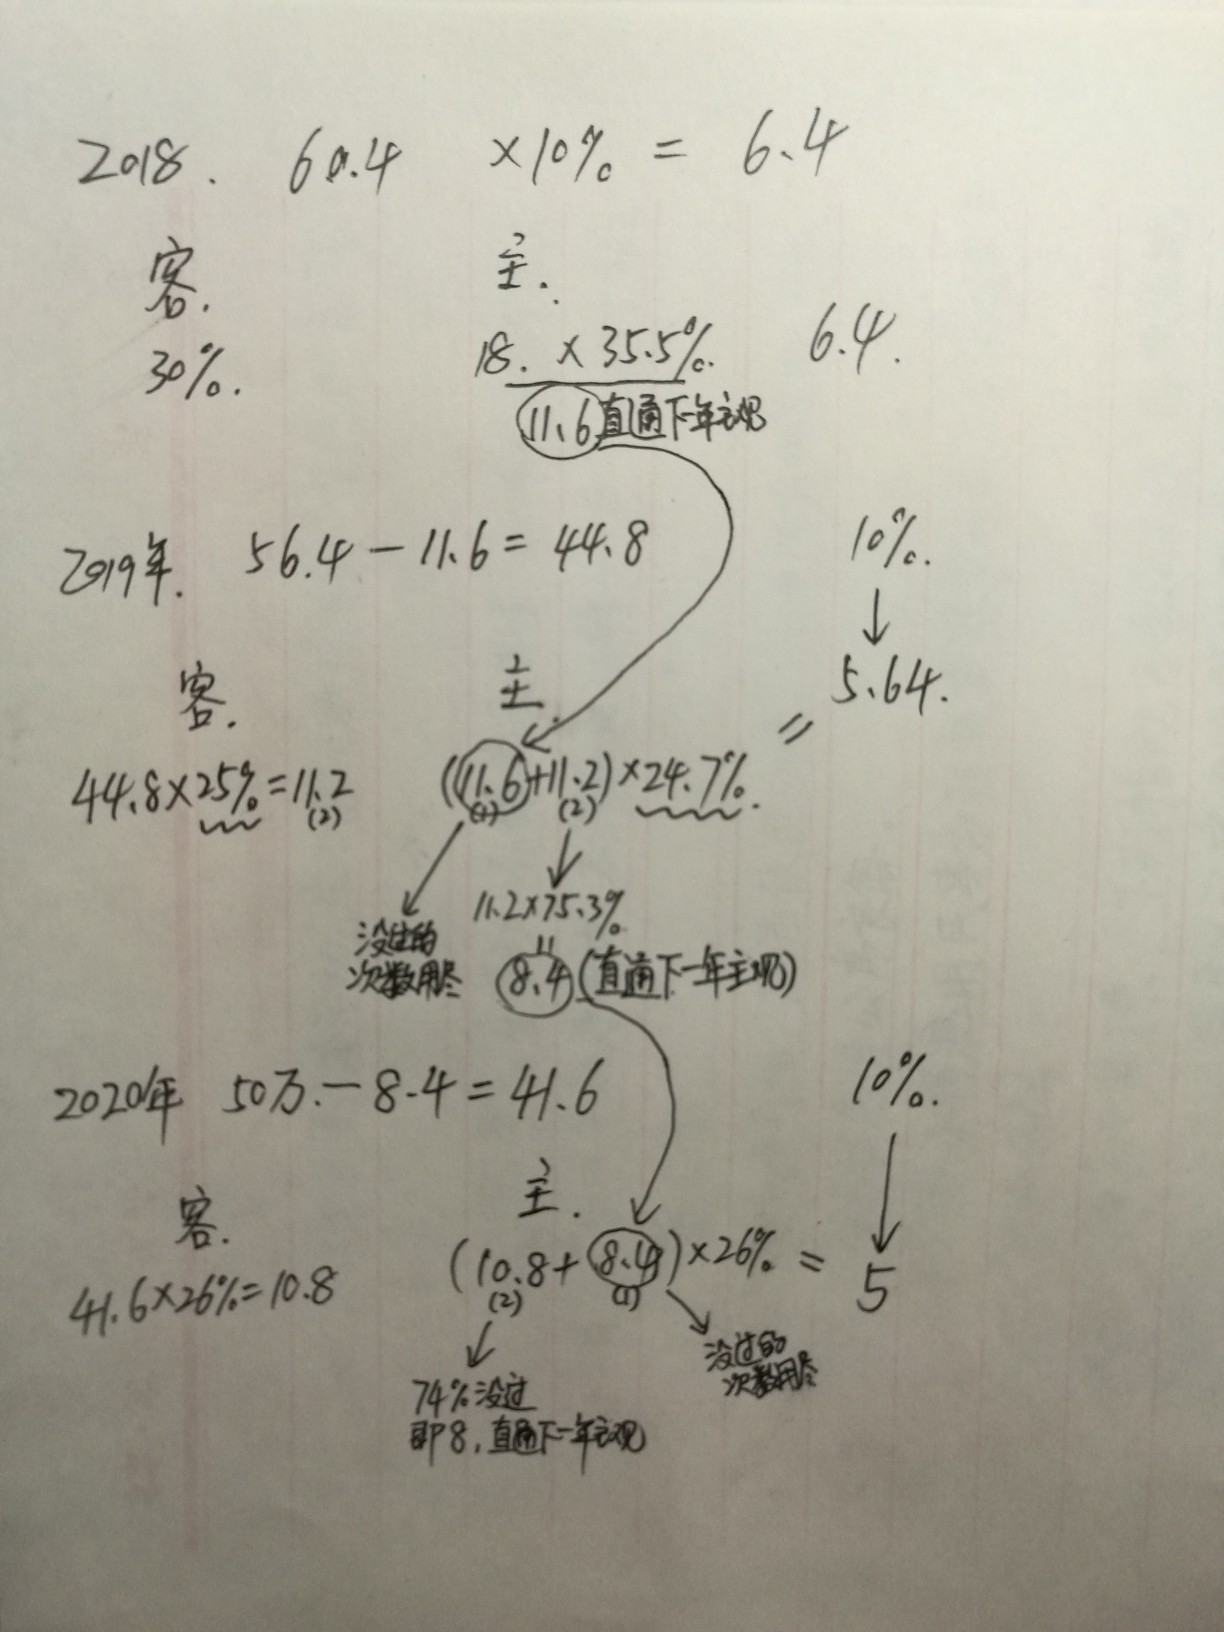 2018. 60.4 ×10% = 6.4
客. 主.
30%. 18. × 35.5% 6.4.
11.6 直通下年主观
2019年. 56.4 - 11.6 = 44.8 10%.
↓
客. 主. 5.64.
44.8×25%=11.2 (11.6+11.2)×24.7%. =
(2) (1) (2)
11.2×75.3%
没过的 =
次数用尽 8.4 (直通下一年主观)
2020年 50万. - 8.4 = 41.6 10%.
客. 主.
41.6×26%=10.8 (10.8+8.4)×26% = 5
(2) (1)
没过的
次数用尽
74%没过
即8,直通下一年主观